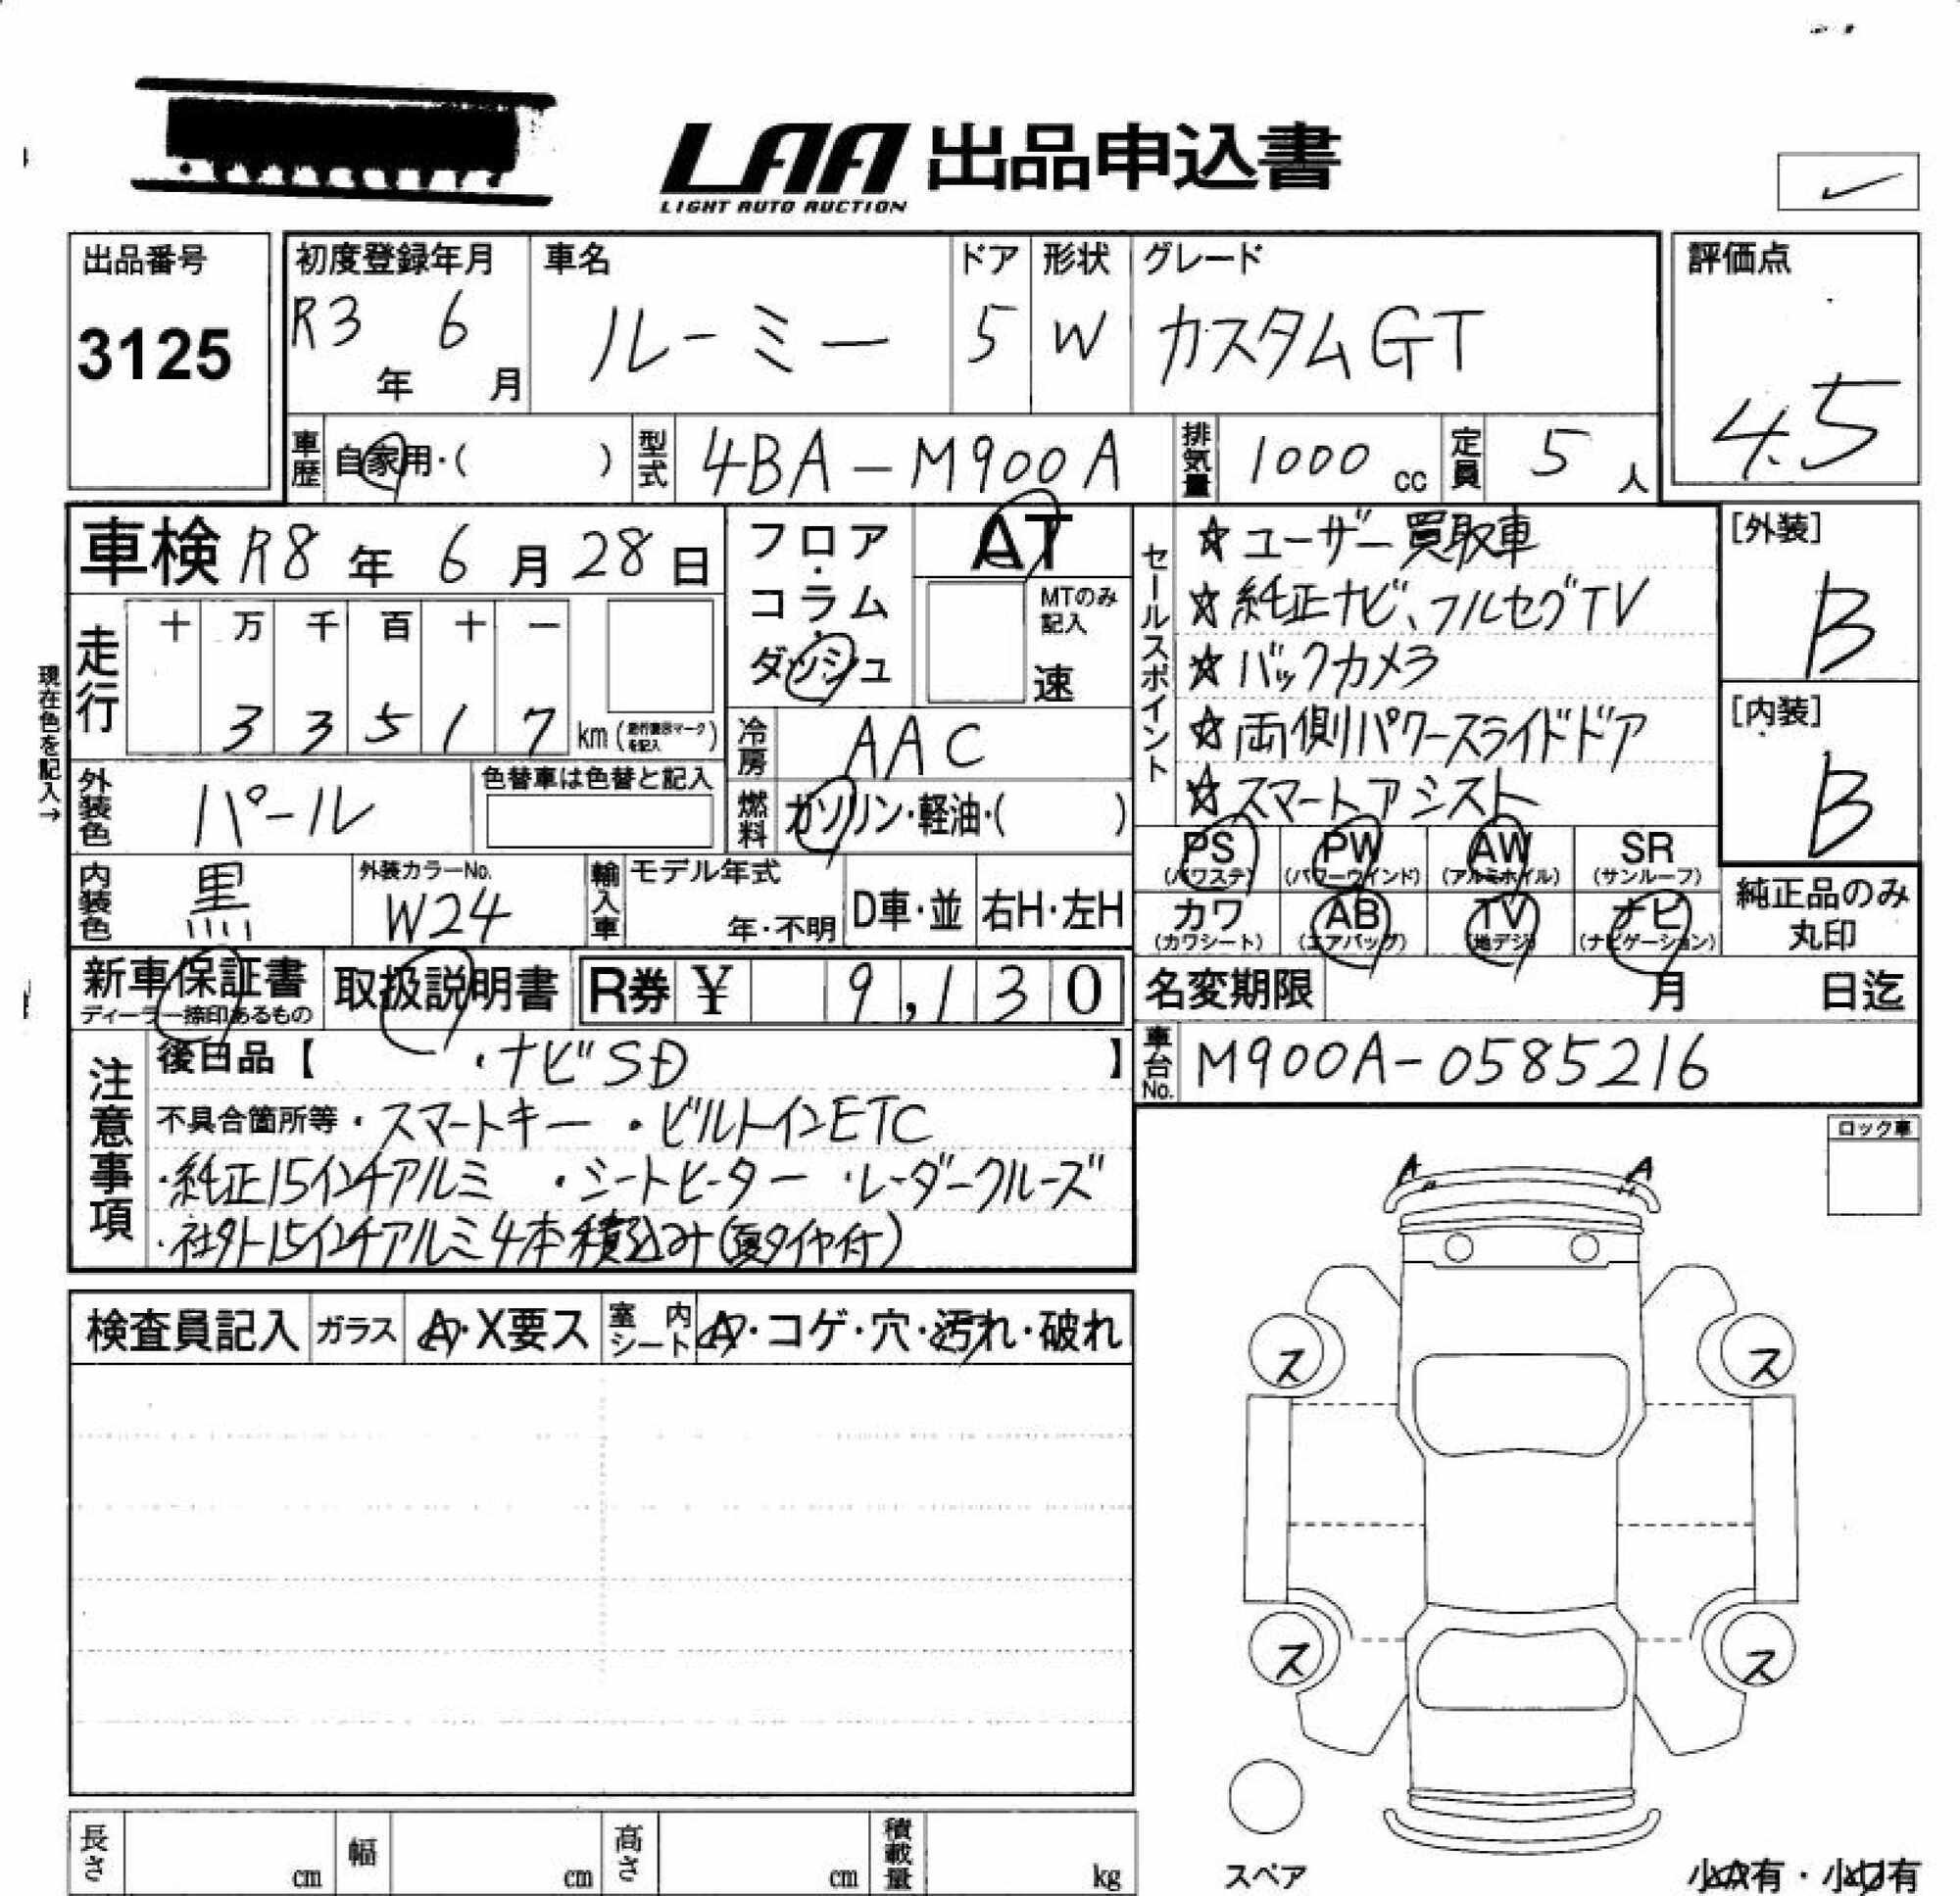 LAA 出品申込書
LIGHT AUTO AUCTION
出品番号
3125
初度登録年月
R3年 6月
車名
ルーミー
ドア
5
形状
W
グレード
カスタムGT
評価点
4.5
車歴 自家用・( )
型式 4BA-M900A
排気量 1000 cc
定員 5 人
車検 R8年 6月 28日
現在色を記入→
走行
十 万 千 百 十 一
3 3 5 1 7 km
外装色 パール
色替車は色替と記入
内装色 黒
外装カラーNo.
W24
フロア・コラム・ダッシュ
AT
MTのみ記入
速
冷房 AAC
燃料 ガソリン・軽油・( )
輸入車 モデル年式
年・不明
D車・並
右H・左H
セールスポイント
☆ユーザー買取車
☆純正ナビ、フルセグTV
☆バックカメラ
☆両側パワースライドドア
☆スマートアシスト
[外装]
B
[内装]
B
PS (パワステ)
PW (パワーウインド)
AW (アルミホイル)
SR (サンルーフ)
カワ (カワシート)
AB (エアバッグ)
TV (地デジ)
ナビ (ナビゲーション)
純正品のみ
丸印
新車保証書
ディーラー捺印あるもの
取扱説明書
R券 ¥ 9,130
名変期限 月 日迄
車台No. M900A-0585216
注意事項
後日品【 ・ナビSD 】
不具合箇所等・スマートキー ・ビルトインETC
・純正15インチアルミ ・シートヒーター ・レーダークルーズ
・社外15インチアルミ4本積込み(夏タイヤ付)
ロック車
A A
検査員記入
ガラス A・X要ス
室内シート A・コゲ・穴・汚れ・破れ
ス ス
ス ス
スペア
長さ cm
幅 cm
高さ cm
積載量 kg
小A有・小U有